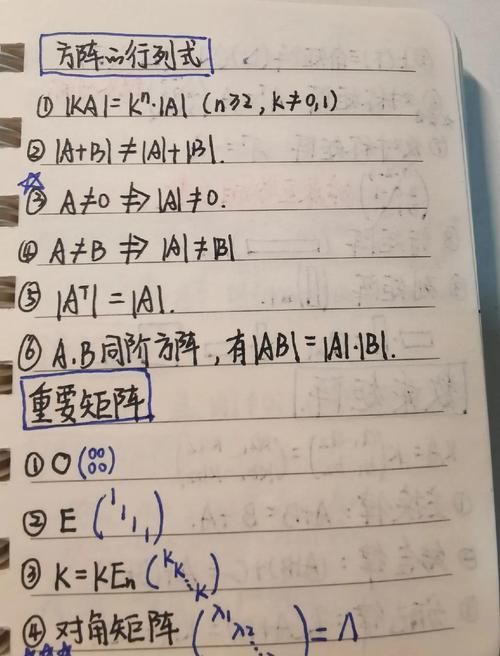 方阵的行列式
① |KA| = Kⁿ·|A| (n≥2, k≠0,1)
② |A+B| ≠ |A|+|B|.
☆③ A≠0 ⇏ |A|≠0.
④ A≠B ⇏ |A|≠|B|
⑤ |Aᵀ| = |A|.
⑥ A.B同阶方阵，有|AB| = |A|·|B|.
重要矩阵
① O (00 00)
② E (1 1 1 1)
③ K = KEn (K K ⋱ K)
④ 对角矩阵 (λ1 λ2 ⋱) = Λ